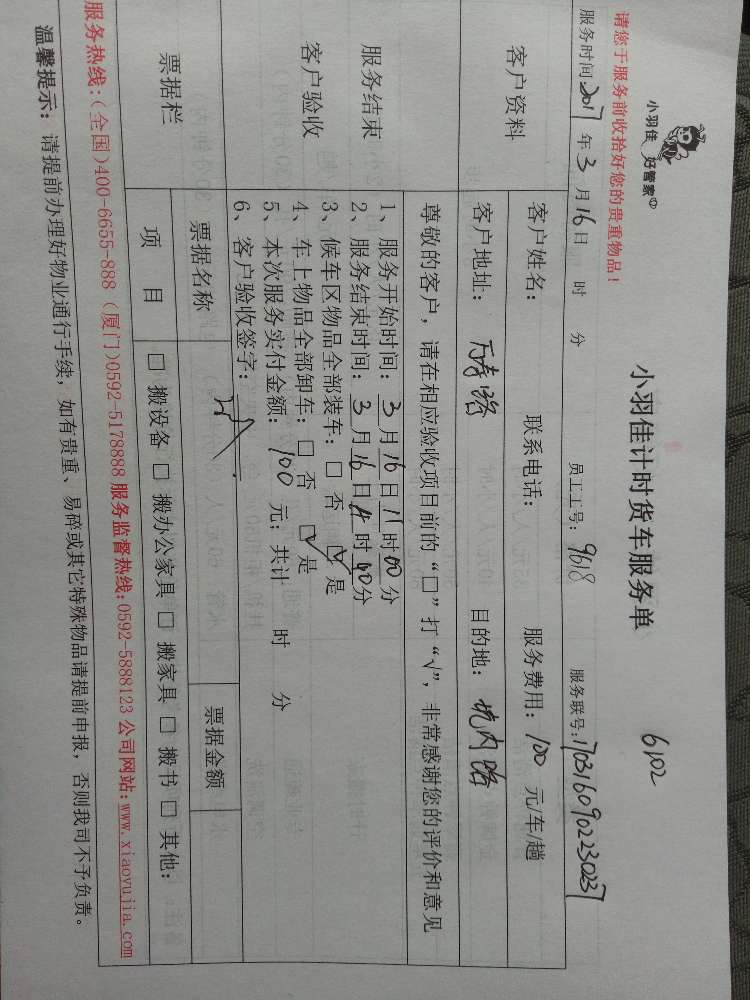 请您于服务前收拾好您的贵重物品！
小羽佳 好管家
小羽佳计时货车服务单
6102
服务时间2017年3月16日 时 分 员工工号：9618 服务联号：170316090223023
客户资料
客户姓名： 联系电话： 服务费用：100元/车/趟
客户地址：万寿路 目的地：坑内路
服务结束
客户验收
尊敬的客户，请在相应验收项目前的“□”打“√”，非常感谢您的评价和意见
1、服务开始时间：3月16日11时00分
2、服务结束时间：3月16日 时40分
3、候车区物品全部装车：□ 否 ☑ 是
4、车上物品全部卸车：□ 否 ☑ 是
5、本次服务实付金额：100元；共计 时 分
6、客户验收签字：
票据栏
票据名称 票据金额
项 目 □ 搬设备 □ 搬办公家具 □ 搬家具 □ 搬书 □ 其他：
服务热线：（全国）400-6655-888（厦门）0592-5178888 服务监督热线：0592-5888123 公司网站：www.xiaoyujia.com
温馨提示：请提前办理好物业通行手续，如有贵重、易碎或其它特殊物品请提前申报，否则我司不予负责。